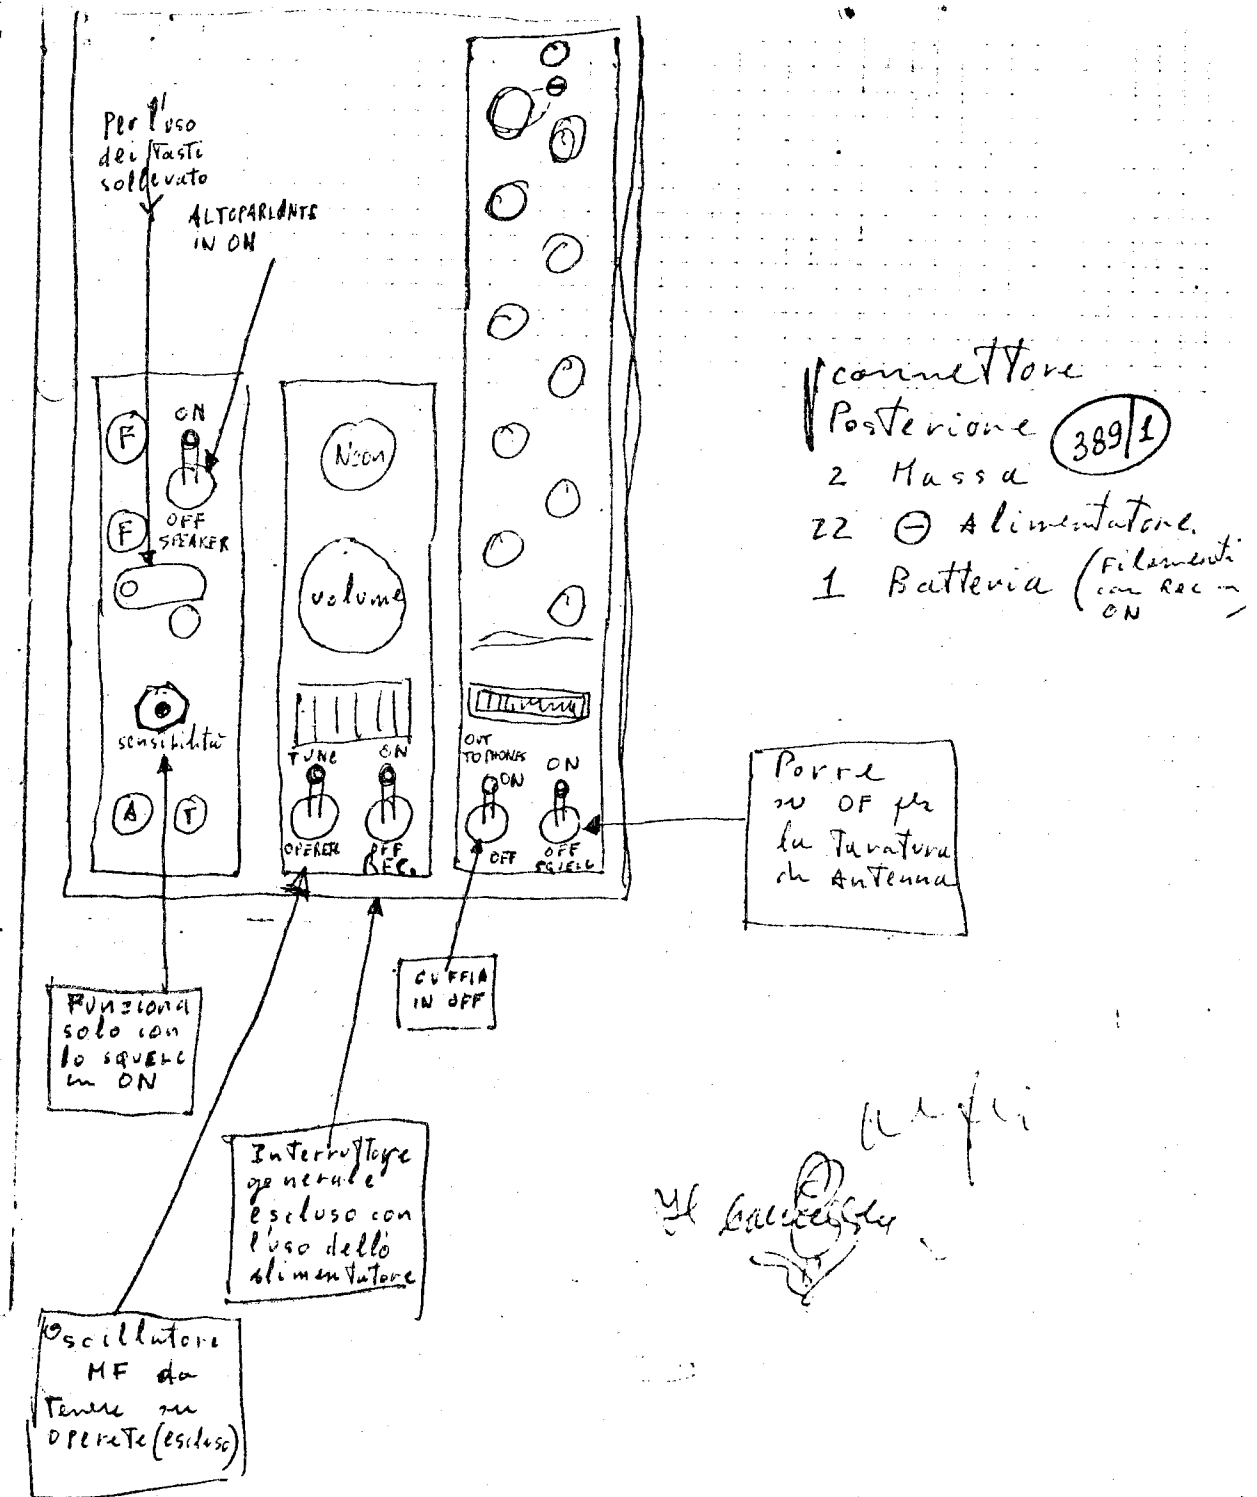 Per l'uso
dei Tasti
sollevato
ALTOPARLANTE
IN ON
F
ON
F
OFF
SPEAKER
sensibilità
A
T
Neon
volume
TUNE
ON
OPERETE
OFF
REC.
OUT
TO PHONES
ON
ON
OFF
OFF
SQUELC
connettore
Posteriore
389/1
2 Massa
22 ⊖ Alimentatore
1 Batteria (Filamenti
con Rec in
ON
Porre
su OF per
la Taratura
di Antenna
CUFFIA
IN OFF
Funziona
solo con
lo SQUELC
in ON
Interruttore
generale
escluso con
l'uso dello
alimentatore
Oscillatore
MF da
Tenere su
OPERETE (escluso)